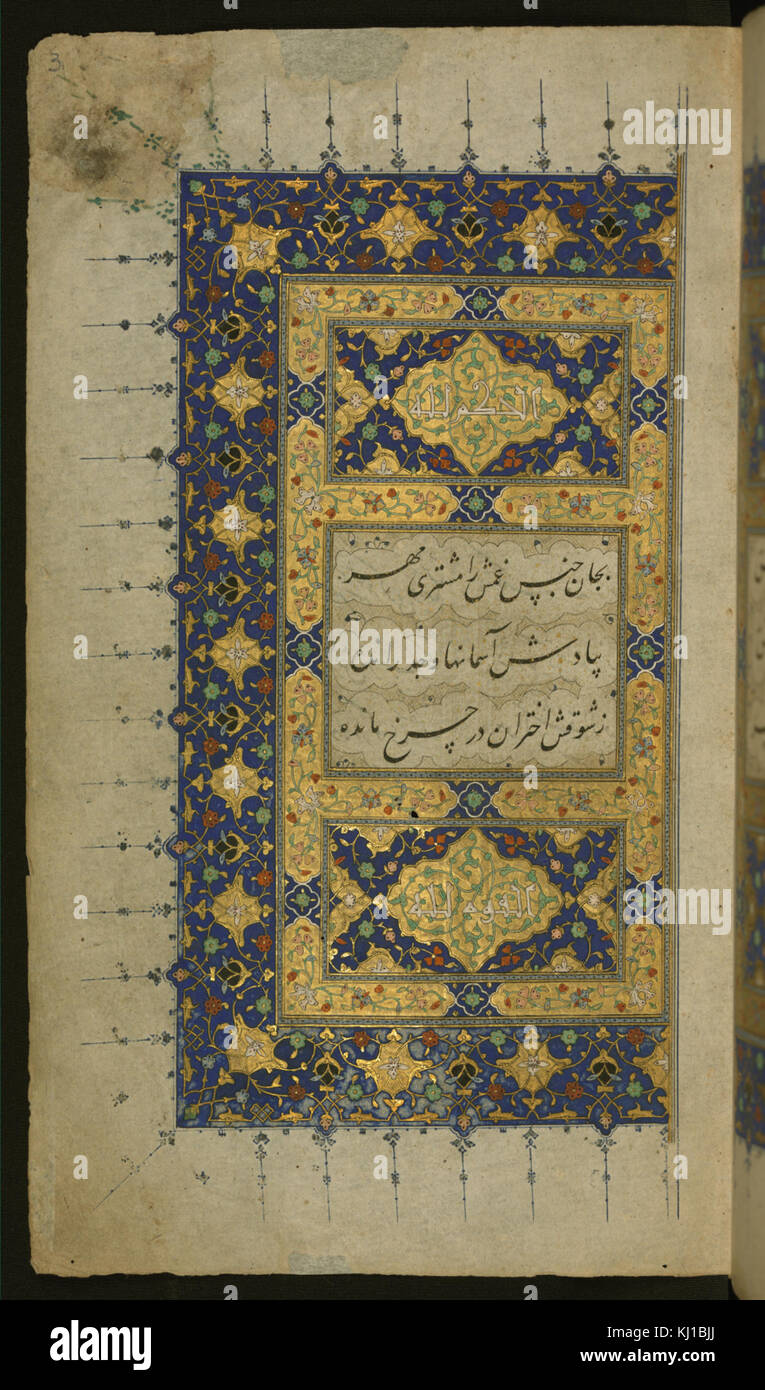 3
الحكم لله
بجان جنس غمش را مشتری مهر
بیادش آسمانها وجد
زشوقش اختران در چرخ مانده
القوه لله
alamy
alamy
Image ID: KJ1BJJ
www.alamy.com